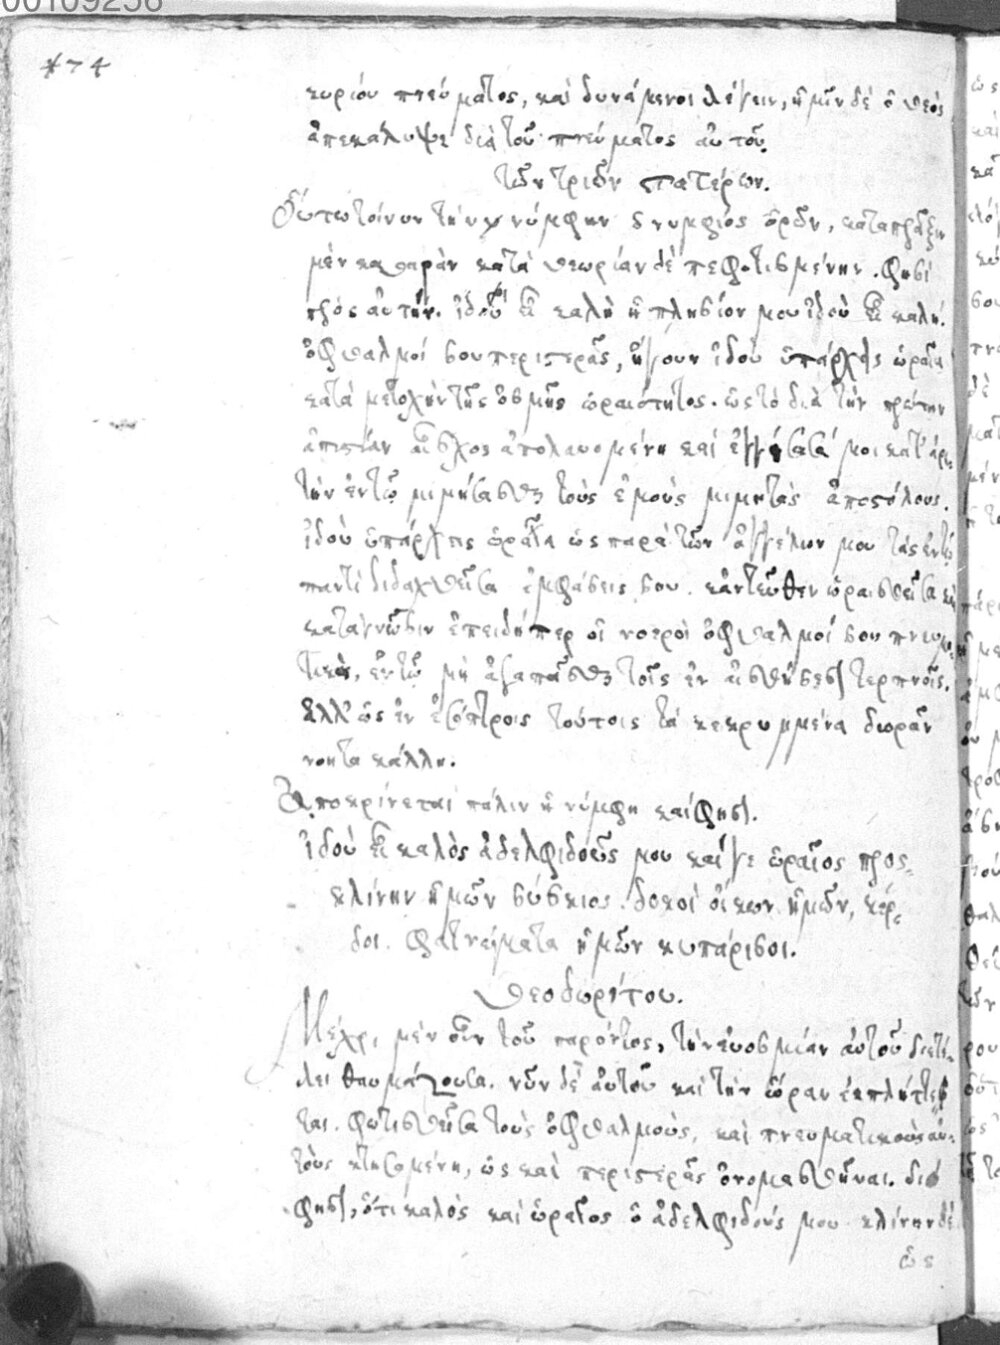 00109256
474
κυρίου πνεύματος, καὶ δυνάμενοι λέγειν, ἡμῖν δὲ ὁ θεὸς
ἀπεκάλυψε διὰ τοῦ πνεύματος αὐτοῦ.
τῶν τριῶν πατέρων.
Οὕτω τοίνυν τὴν νύμφην ὁ νυμφίος ὁρῶν, κατὰ πρᾶξιν
μὲν καθαρὰν κατὰ θεωρίαν δὲ πεφωτισμένην. φησὶ
πρὸς αὐτήν. ἰδοὺ εἶ καλὴ ἡ πλησίον μου ἰδοὺ εἶ καλή.
ὀφθαλμοί σου περιστερᾶς, ἤγουν ἰδοὺ ὑπάρχεις ὡραία
κατὰ μετοχὴν τῆς ὀσμῆς ὡραιότητος. ὡς τὸ διὰ τὴν πρώτην
ἀπιστίαν αἶσχος ἀπολουομένη καὶ ἐγγίσασά μοι κατ' ἀρε
τὴν ἐν τῷ μιμήσασθαι τοὺς ἐμοὺς μιμητὰς ἀποστόλους.
ἰδοὺ ὑπάρχεις ὡραία ὡς παρὰ τῶν ἀγγέλων μου τὰς ἐν τῷ
παντὶ διδαχθεῖσα ἐμφάσεις σου. κἀντεῦθεν ὡραισθεῖσα καὶ
κατὰ γνῶσιν ἐπειδήπερ οἱ νοεροὶ ὀφθαλμοί σου πνευμα
τικῶς, ἐν τῷ μὴ ἀξαπᾶσθαι τοῖς ἐν αἰσθήσεσι τερπνοῖς.
ἀλλ' ὡς ἐν ἐσόπτροις τούτοις τὰ κεκρυμμένα διορᾶν
νοητὰ κάλλη.
Ἀποκρίνεται πάλιν ἡ νύμφη καί φησι.
ἰδοὺ εἶ καλὸς ἀδελφιδοῦς μου καί γε ὡραῖος πρὸς
κλίνην ἡμῶν σύσκιος. δοκοὶ οἴκων ἡμῶν, κέδ
ροι. φατνώματα ἡμῶν κυπάρισοι.
Θεοδωρίτου.
Μέχρι μὲν οὖν τοῦ παρόντος, τὴν εὐοσμίαν αὐτοῦ διετέ
λει θαυμάζουσα. νῦν δὲ αὐτοῦ καὶ τὴν ὥραν ἐκπλήττε
ται. φωτισθεῖσα τοὺς ὀφθαλμούς, καὶ πνευματικοὺς αὐ
τοὺς κτησαμένη, ὡς καὶ περιστερᾶς ὀνομασθῆναι. διό
φησι, ὅτι καλὸς καὶ ὡραῖος ὁ ἀδελφιδούς μου κλίνην δὲ
ὡς